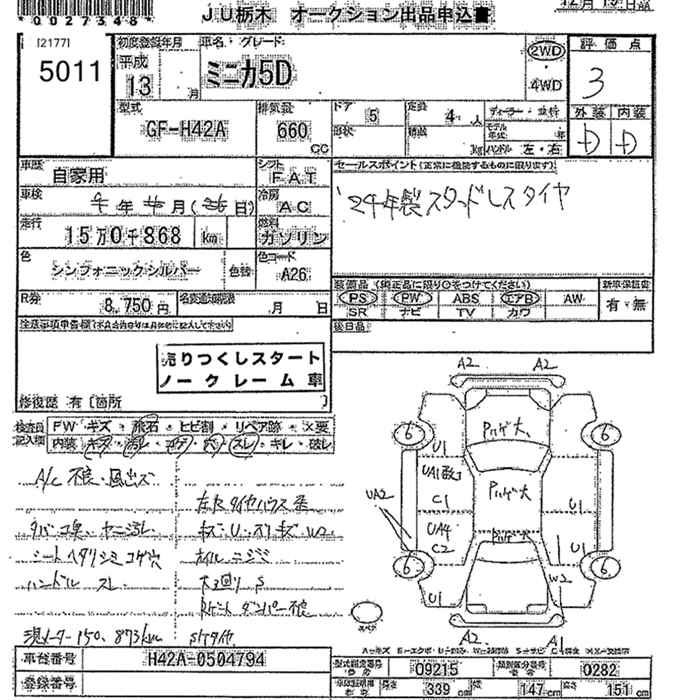 *027348*
JU栃木 オークション出品申込書
[2177]
5011
初度登録年月
平成
13 月
車名・グレード
ミニカ5D
2WD
・
4WD
評価点
3
外装 内装
D D
型式
GF-H42A
排気量
660
CC
ドア 5
形状
定員 4 人
積載 kg
ディーラー・並行
モデル年式 年
ハンドル 左・右
車歴
自家用
シフト
FAT
車検
年 年 月 ( 日)
冷房
AC
走行
15万0千868 km
燃料
ガソリン
色
シンフォニックシルバー
色替
色コード
A26
R券
8,750円
名変期限 月 日
セールスポイント (正常に機能するものに限ります)
24年製スタッドレスタイヤ
装備品 (純正品に限り○をつけてください)
PS PW ABS エアB AW
SR ナビ TV カワ
新車保証書
有・無
後日品
注意事項申告欄
売りつくしスタート
ノークレーム車
修復歴 有 [箇所 ]
検査員記入欄
FW キズ・飛石・ヒビ割・リペア跡・X要
内装 キズ・汚レ・コゲ・穴・スレ・キレ・破レ
A/C 不良・風出ズ
タバコ臭、ヤニ汚レ
シートヘタリシミコゲ穴
ハンドル スレ
現メーター150,873km
キズU・スリキズ W2
オイルニジミ
下廻りS
Rゲートダンパー不良
A2 A2
6 6
U1
Pハゲ大
UA1
C1
Pハゲ大
U1
UA2
UA4
C2
Pハゲ大
U1
6 6
W2
U1
A2 A1
スペア
車台番号 H42A-0504794
登録番号
型式指定番号 09215
類別区分番号 0282
長さ 339 cm
幅 147 cm
高さ 151 cm